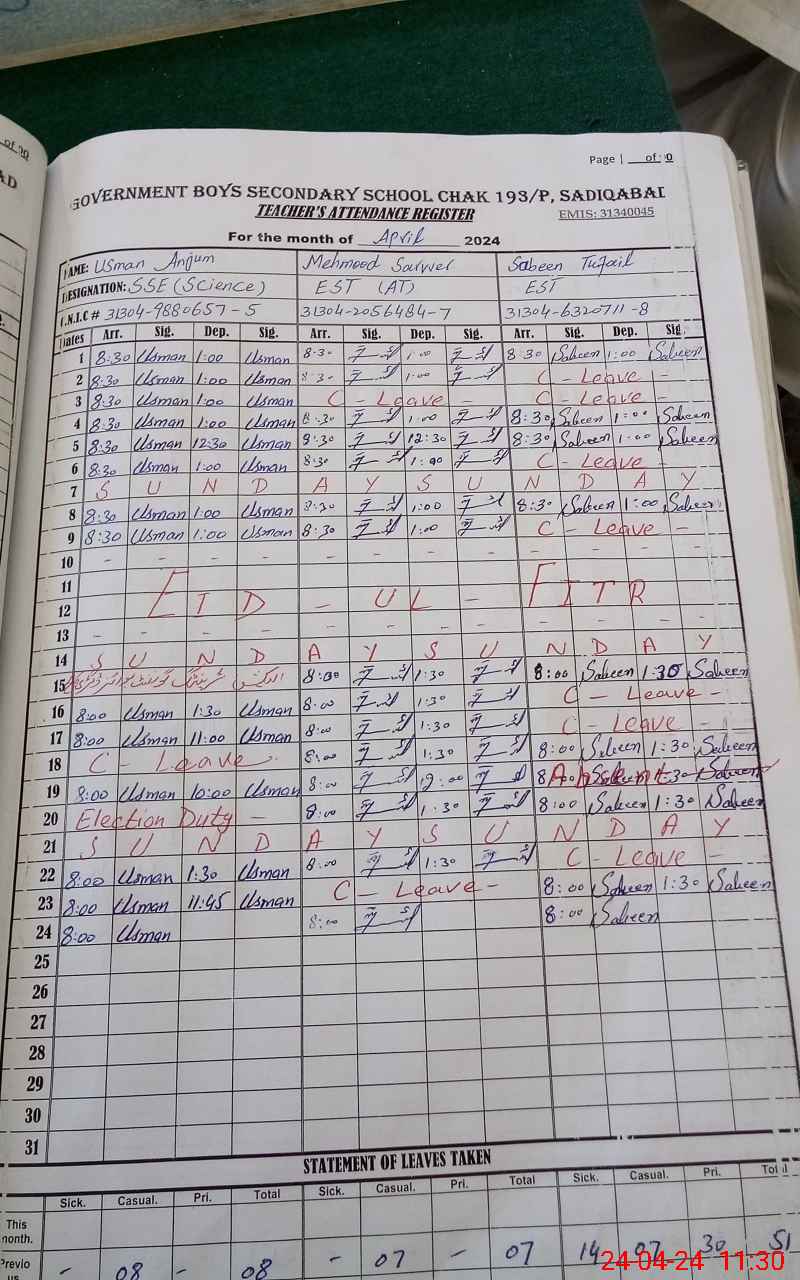 of 30
AD
Page | of 30
GOVERNMENT BOYS SECONDARY SCHOOL CHAK 193/P, SADIQABAD
TEACHER'S ATTENDANCE REGISTER EMIS: 31340045
For the month of April 2024
NAME: Usman Anjum Mehmood Sarwer Sabeen Tufail
DESIGNATION: SSE (Science) EST (AT) EST
C.N.I.C # 31304-9880657-5 31304-2056484-7 31304-6320711-8
Dates Arr. Sig. Dep. Sig. Arr. Sig. Dep. Sig. Arr. Sig. Dep. Sig.
1 8:30 Usman 1:00 Usman 8:30 1:00 8:30 Sabeen 1:00 Sabeen
2 8:30 Usman 1:00 Usman 8:30 1:00 C - Leave -
3 8:30 Usman 1:00 Usman C - Leave - C - Leave -
4 8:30 Usman 1:00 Usman 8:30 1:00 8:30 Sabeen 1:00 Sabeen
5 8:30 Usman 12:30 Usman 8:30 12:30 8:30 Sabeen 1:00 Sabeen
6 8:30 Usman 1:00 Usman 8:30 1:00 C - Leave -
7 S U N D A Y S U N D A Y
8 8:30 Usman 1:00 Usman 8:30 1:00 8:30 Sabeen 1:00 Sabeen
9 8:30 Usman 1:00 Usman 8:30 1:00 C - Leave -
10 - - - - - - - - - - - -
11
12 EID - UL - FITR
13 - - - - - - - - - - - -
14 S U N D A Y S U N D A Y
15 8:00 1:30 8:00 Sabeen 1:30 Sabeen
16 8:00 Usman 1:30 Usman 8:00 1:30 C - Leave -
17 8:00 Usman 11:00 Usman 8:00 1:30 C - Leave -
18 C - Leave 8:00 1:30 8:00 Sabeen 1:30 Sabeen
19 8:00 Usman 10:00 Usman 8:00 12:00 8:00 Sabeen 1:30 Sabeen
20 Election Duty - 8:00 1:30 8:00 Sabeen 1:30 Sabeen
21 S U N D A Y S U N D A Y
22 8:00 Usman 1:30 Usman 8:00 1:30 C - Leave -
23 8:00 Usman 11:45 Usman C - Leave - 8:00 Sabeen 1:30 Sabeen
24 8:00 Usman 8:00 8:00 Sabeen
25
26
27
28
29
30
31
STATEMENT OF LEAVES TAKEN
Sick. Casual. Pri. Total Sick. Casual. Pri. Total Sick. Casual. Pri. Total
This month.
Previous - 08 - 08 - 07 - 07 14 07 30 51
24-04-24 11:30